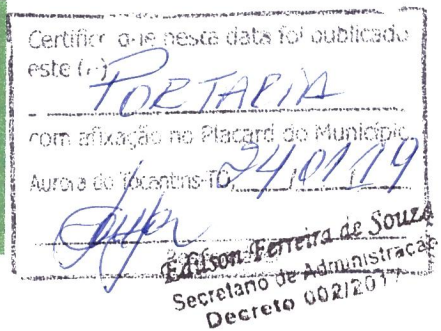 Certifico que nesta data foi publicado
este (a)
PORTARIA
com afixação no Placard do Município
Aurora do Tocantins-TO, 24/01/19
Edilson Ferreira de Souza
Secretario de Administração
Decreto 002/2017